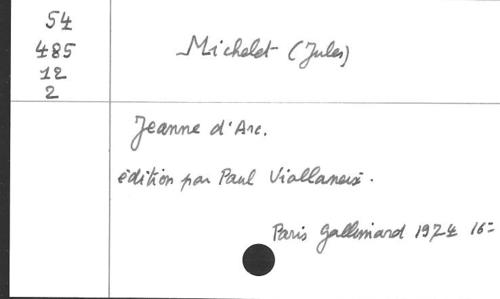 54
485
12
2
Michelet (Jules)
Jeanne d'Arc.
édition par Paul Viallaneix.
Paris Gallimard 1974 16=